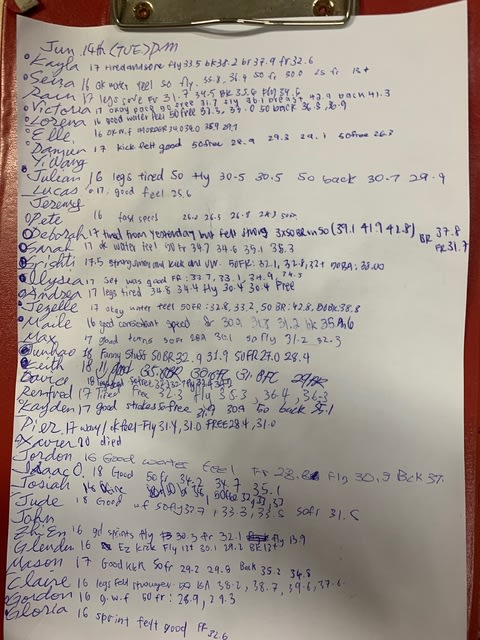 Jun 14th (TUE) PM
Kayla 17 tired and sore fly 33.5 bk 38.2 br 37.9 fr 32.6
Seiza 16 ok water feel 50 fly 35.8, 36.9 50 fr 30.0 25 fr
Rain 17 legs sore Fr 31.7 34.5 BK 35.6 Fly 34.6
Victoria 17 okay pace 50 free 31.7 fly 36.1 breast 42.9 back 41.3
Lorena 16 good water feel 50 free 33.3, 37.0 50 back 36.3, 36.9
Elle 16 ok w.f
Damien 17 kick felt good 50 free 28.9 29.3 29.1 50 free 26.3
Yi Wang
Julian 16 legs tired 50 fly 30.5 30.5 50 back 30.7 29.9
Lucas 17, good feel 25.6
Jeremy
Pete 16 fast speed 26.2 26.5 26.8
Deborah 17 tired from yesterday but felt strong 3x50 BR in 50 (39.1 41.9 41.8) BR 37.8 FR 31.7
Sarah 17 ok water feel 50 fr 34.7 34.6 35.1 38.3
Srishti 17.5 strong arms and kick and UW. 50FR: 32.1, 32.8, 32+ 50BA: 38.00
Allysia 17 Set was good FR: 33.7, 33.1, 34.9, 34.5
Andrea 17 legs tired 34.8 34.4 Fly 30.4 30.4 Free
Jezelle 17 okay water feel 50 FR: 32.8, 33.2, 50 BR: 42.8, 50BK 38.8
Maile 16 good consistent speed fr 30.9 31.8 31.2 bk 35.16
Max 17 good turns 50 fr 28.4 30.1 50 fly 31.2 32.3
Junhao 18 Funny stuff 50BR 32.9 31.9 50FR 27.0 28.4
Keith 18
Davice 18
Renfred 17 tired Free 32.3 fly 35.3, 36.4, 36.3
Kayden 17 good strokes 50 free 31.9 30.9 50 back 35.1
Pier 17 way/ok feel - Fly 31.4, 31.0 FREE 28.4, 31.0
Xavier 20 died
Jordon 16 Good water feel Fr 28.8 Fly 30.9 Bck 37.
Isaac O. 18 Good 50 fr 34.2 34.7 35.1
Josiah 16
Jude 18 Good wf 50 fly 32.7, 33.3, 33.5 50 fr 31.5
John
Zhi En 16 gd sprints fly 30.3 fr 32.1 fly 13.9
Glenden 16 Ez kick Fly 13+ 30.1 29.2 BK 13+
Mason 17 Good kick 50 fr 29.2 29.8 Back 35.2 34.8
Claire 16 legs feel stronger 50 BA 38.2, 38.7, 39.6, 37.6
Gordon 16 g.w.f 50 fr: 28.9, 29.3
Gloria 16 sprint felt good FR 32.6